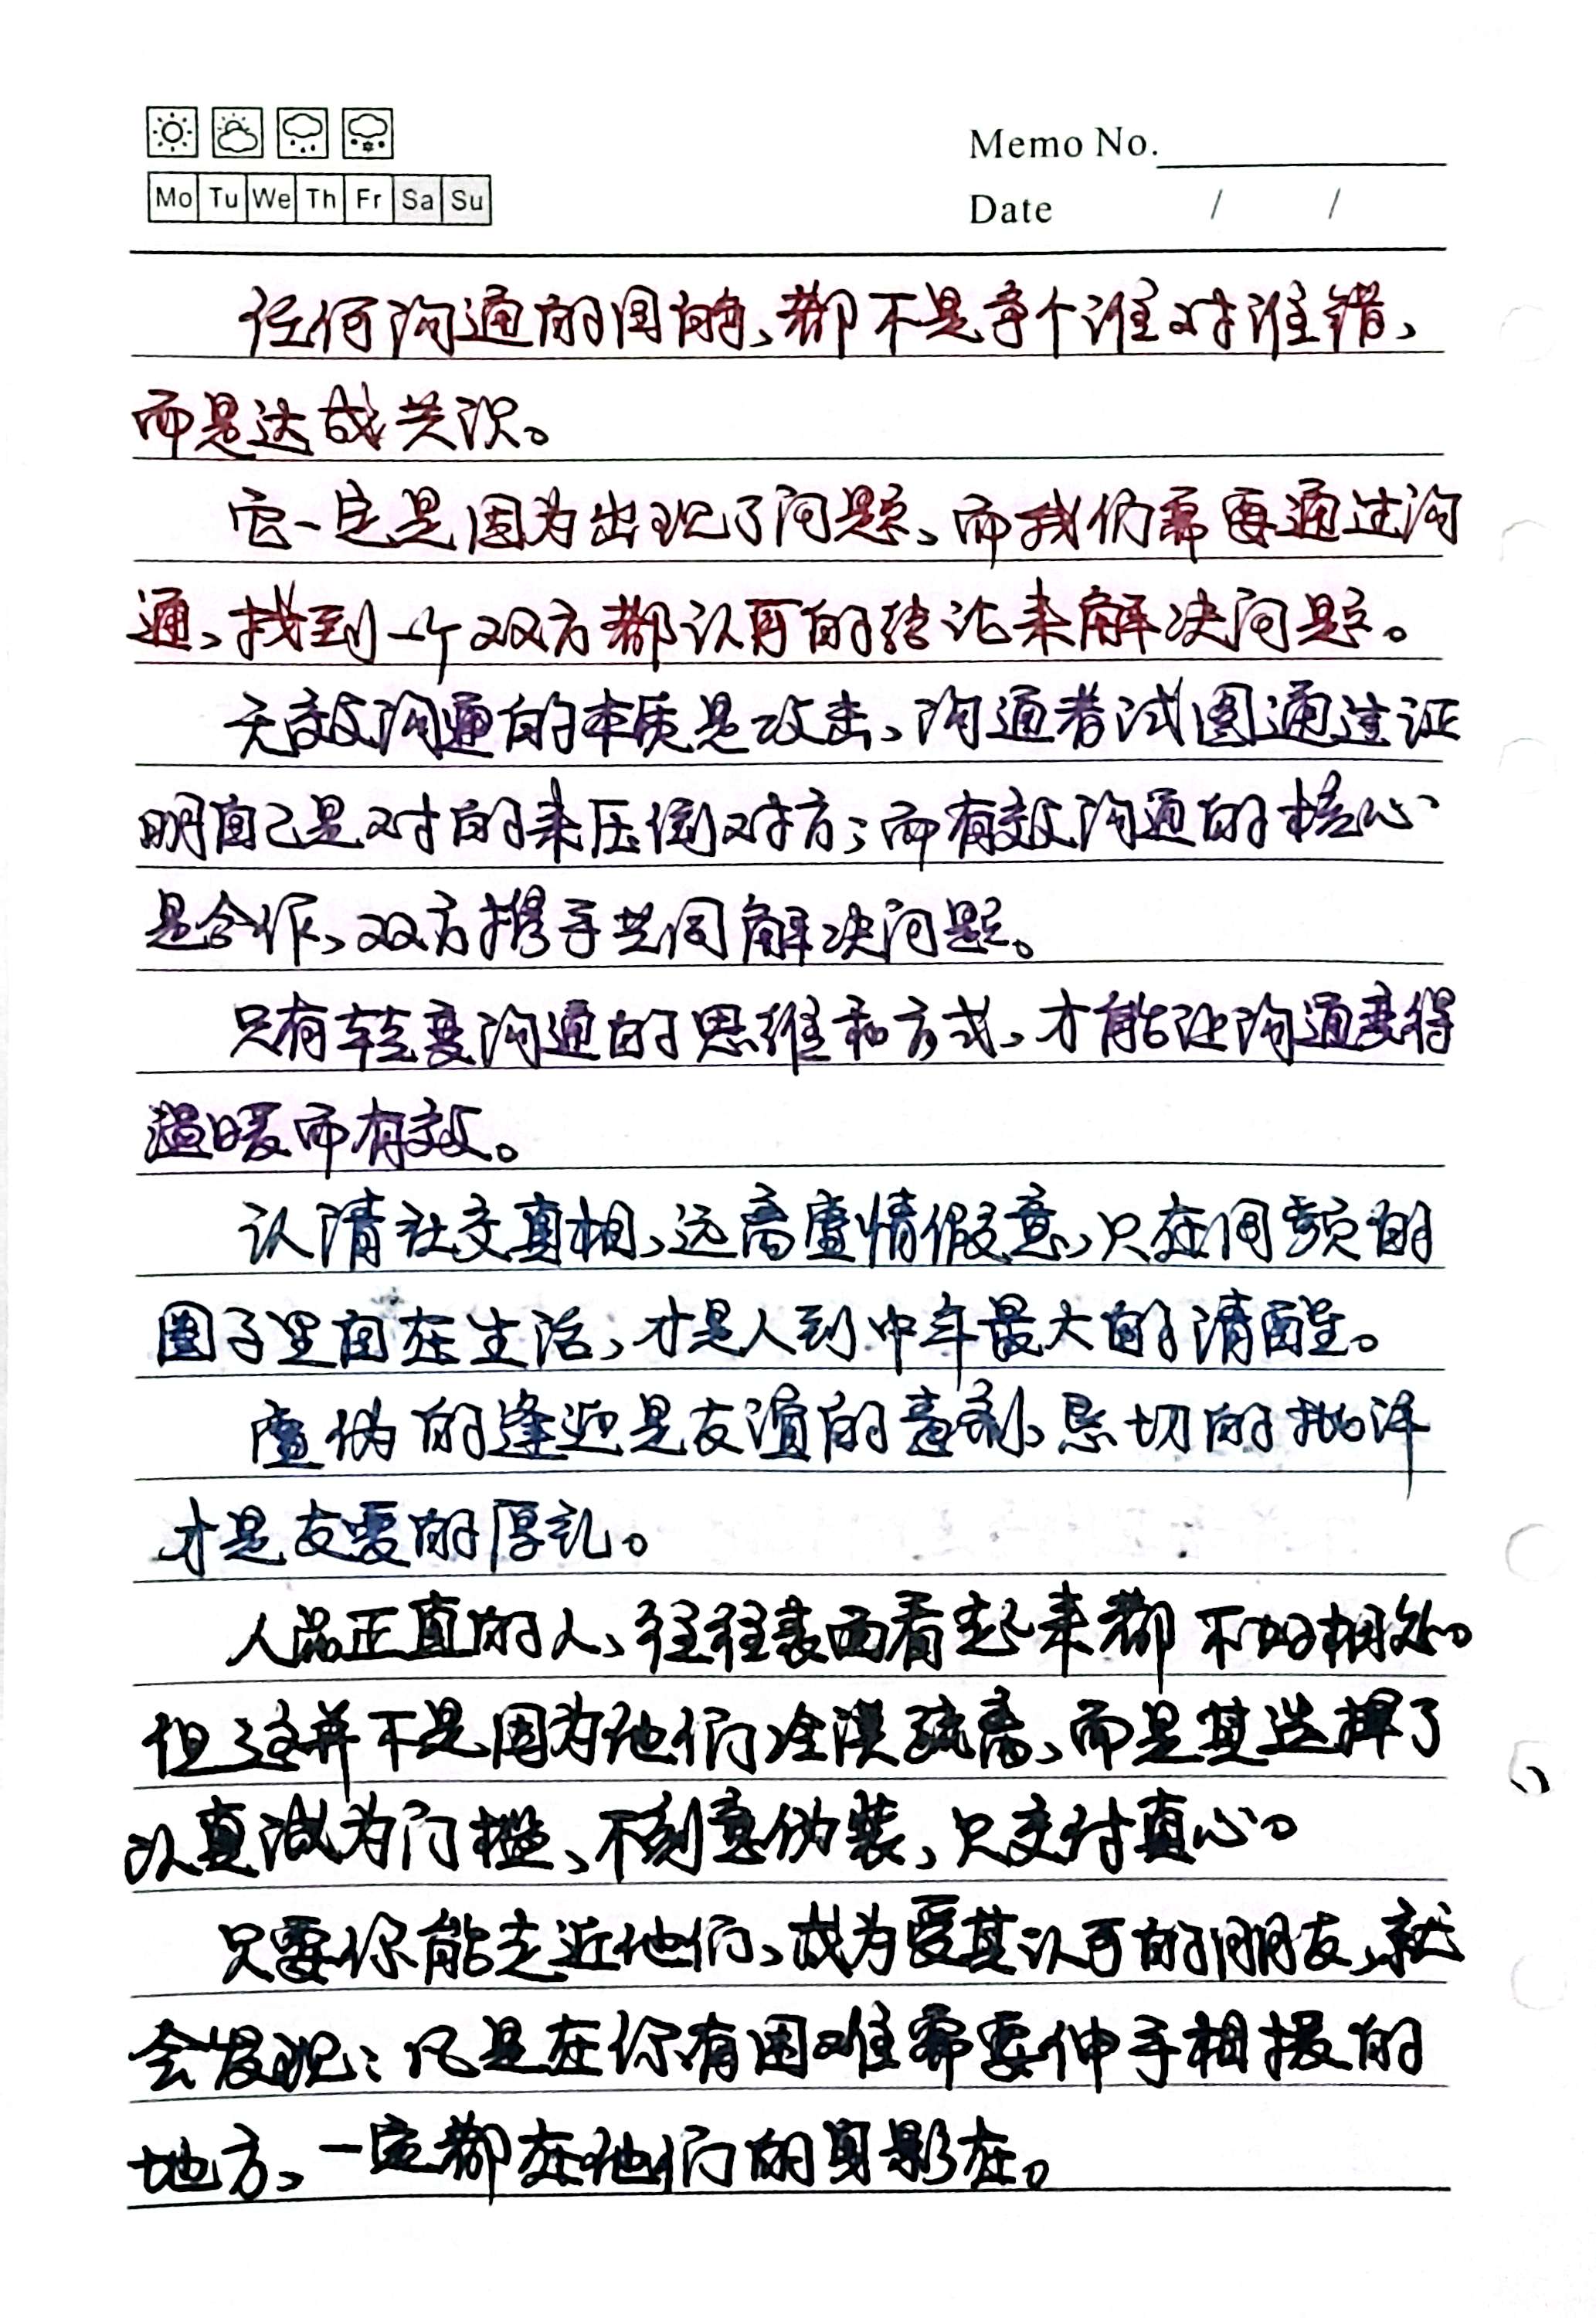 Memo No.
Mo Tu We Th Fr Sa Su
Date / /
任何沟通的目的、都不是争个谁对谁错、
而是达成共识。
它一定是因为出现了问题、而我们需要通过沟
通、找到一个双方都认可的结论来解决问题。
无效沟通的本质是攻击、沟通者试图通过证
明自己是对的来压倒对方；而有效沟通的核心
是合作、双方携手共同解决问题。
只有转变沟通的思维和方式、才能让沟通变得
温暖而有效。
认清社交真相、远离虚情假意、只在同频的
圈子里自在生活、才是人到中年最大的清醒。
虚伪的逢迎是友谊的毒剂、恳切的批评
才是友爱的厚礼。
人品正直的人、往往表面看起来都不好相处。
但这并不是因为他们冷漠疏离、而是其选择了
以真诚为门槛、不刻意伪装、只交付真心。
只要你能走近他们、成为受其认可的朋友、就
会发现：凡是在你有困难需要伸手相援的
地方、一定都在他们的身影在。